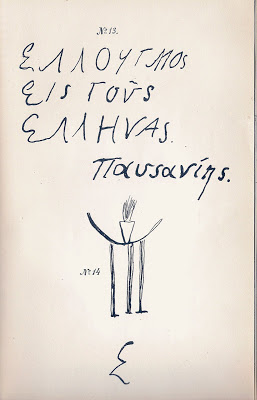 No. 13.
ΕΛΛΟΥΓΜΟς
ΕΙς ΓΟῪς
ΕΛΛΗΝΑς.
Παυσανίης.
No. 14
Ε